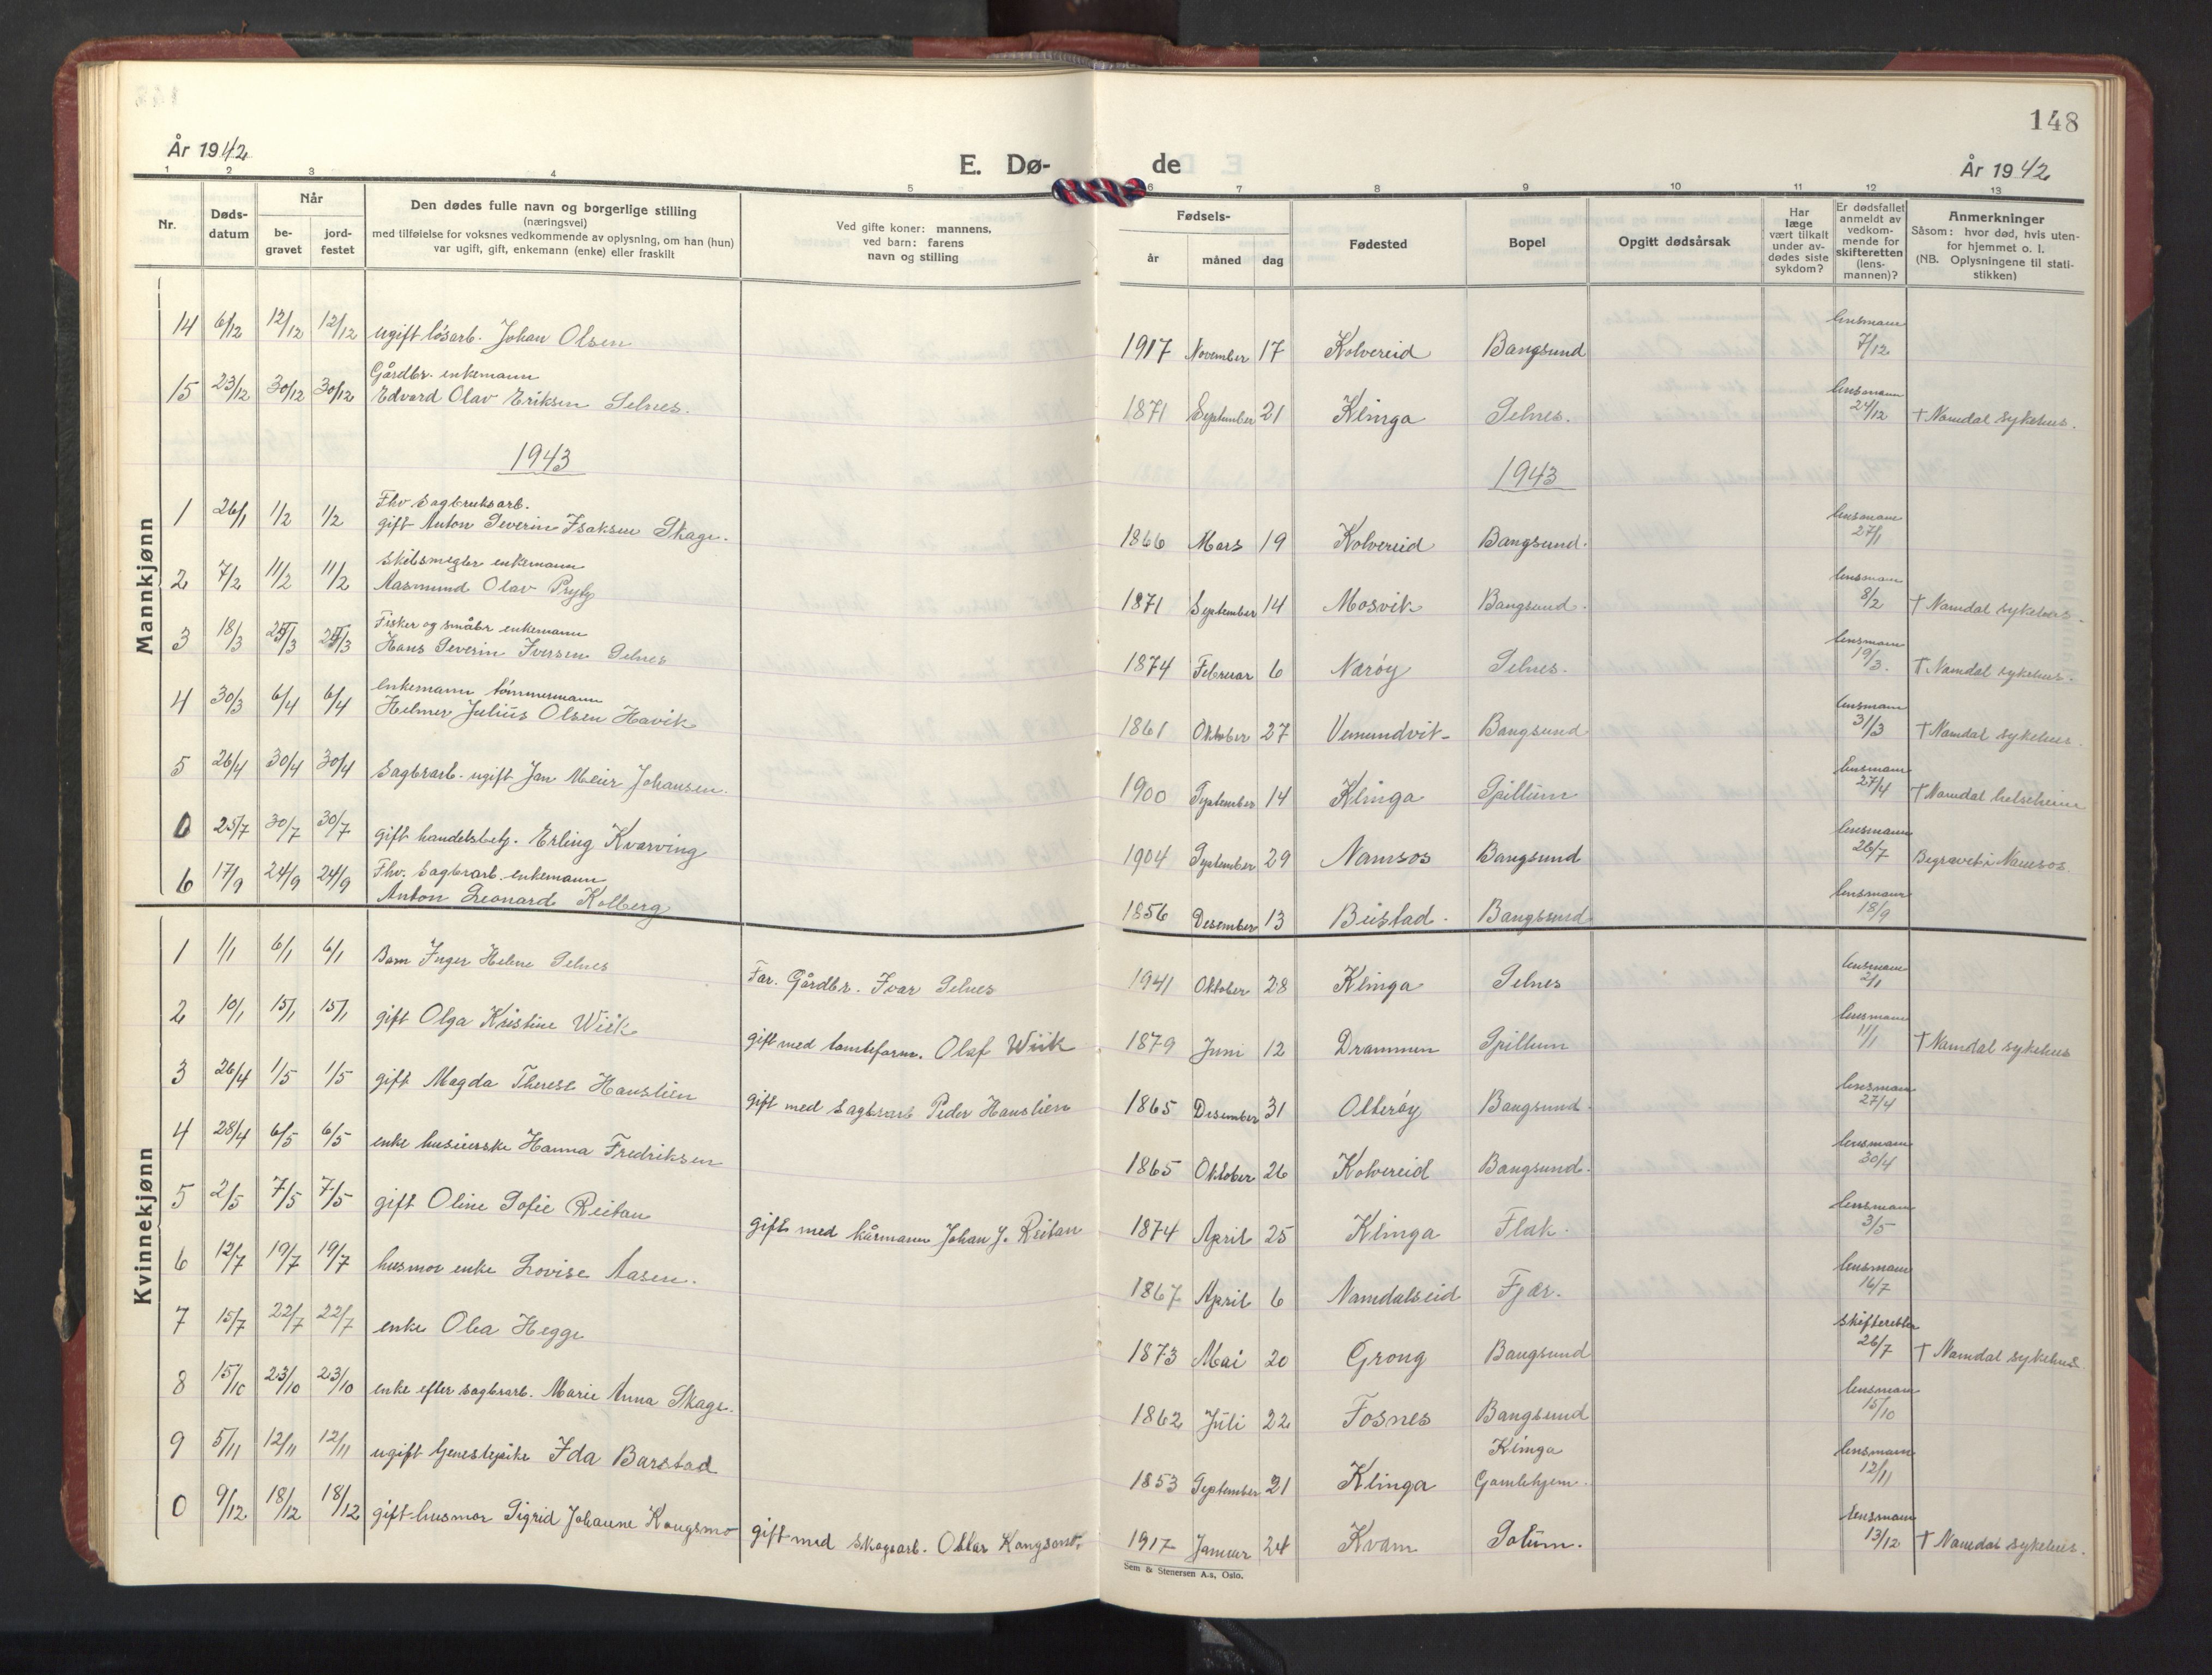 148
År 1942
E. Dø-
de
År 1942
1 2 3 4 5 6 7 8 9 10 11 12 13
Nr.
Døds-
datum
Når
be-
gravet
jord-
festet
Den dødes fulle navn og borgerlige stilling
(næringsvei)
med tilføielse for voksnes vedkommende av oplysning, om han (hun)
var ugift, gift, enkemann (enke) eller fraskilt
Ved gifte koner: mannens,
ved barn: farens
navn og stilling
Fødsels-
år måned dag
Fødested
Bopel
Opgitt dødsårsak
Har
læge
vært tilkalt
under av-
dødes siste
sykdom?
Er dødsfallet
anmeldt av
vedkom-
mende for
skifteretten
(lens-
mannen)?
Anmerkninger
Såsom: hvor død, hvis uten-
for hjemmet o. l.
(NB. Oplysningene til stati-
stikken)
Mannkjønn
14 6/12 12/12 12/12 ugift løsarb. Johan Olsen 1917 November 17 Kolvereid Bangsund lensmann 7/12
Gårdbr. enkemann
15 23/12 30/12 30/12 Edvard Olav Eriksen Selnes. 1871 September 21 Klinga Selnes. lensmann 24/12 † Namdal sykehus.
1943
1943
Fhv sagbruksarb.
1 26/1 1/2 1/2 gift Anton Severin Isaksen Skage. 1866 Mars 19 Kolvereid Bangsund. lensmann 27/1
Skibsmegler enkemann
2 7/2 11/2 11/2 Aasmund Olav Prytz 1871 September 14 Mosvik Bangsund. lensmann 8/2 † Namdal sykehus.
Fisker og småbr enkemann
3 18/3 /3 /3 Hans Severin Iversen Selnes 1874 Februar 6 Nærøy Selnes. lensmann 19/3. † Namdal sykehus.
enkemann tømmermann
4 30/3 6/4 6/4 Helmer Julius Olsen Havik 1861 Oktober 27 Vemundvik Bangsund lensmann 31/3 † Namdal sykehus.
5 26/4 30/4 30/4 Sagbrarb. ugift Jan Meier Johansen. 1900 September 14 Klinga Spillum lensmann 27/4 † Namdal helseheim
0 25/7 30/7 30/7 gift handelsbetj. Erling Kvarving 1904 September 29 Namsos Bangsund lensmann 26/7 Begravet i Namsos.
Fhv. Sagbrarb. enkemann
6 17/9 24/9 24/9 Anton Leonard Kolberg 1856 Desember 13 Beistad. Bangsund lensmann 18/9
Kvinnekjønn
1 1/1 6/1 6/1 Barn Inger Helene Selnes Far. Gårdbr. Ivar Selnes 1941 Oktober 28 Klinga Selnes lensmann 2/1
2 10/1 15/1 15/1 gift Olga Kristine Wiik gift med tomteform. Olaf Wiik 1879 Juni 12 Drammen Spillum lensmann 11/1 † Namdal sykehus
3 26/4 1/5 1/5 gift Magda Therese Hanslien gift med sagbrarb Peder Hanslien 1865 Desember 31 Otterøy Bangsund lensmann 27/4
4 28/4 6/5 6/5 enke husierske Hanna Fredriksen 1865 Oktober 26 Kolvereid Bangsund. lensmann 30/4
5 2/5 7/5 7/5 gift Oline Sofie Reitan gift med kårmann Johan J. Reitan 1874 April 25 Klinga Flak. lensmann 3/5
6 12/7 19/7 19/7 husmor enke Lovise Aasen. 1867 April 6 Namdalseid Fjær. lensmann 16/7
7 15/7 22/7 22/7 enke Olea Hegge 1873 Mai 20 Grong Bangsund skifteretten 26/7 † Namdal sykehus.
8 15/10 23/10 23/10 enke efter sagbrarb. Marie Anna Skage. 1862 Juli 22 Fosnes Bangsund lensmann 15/10
9 5/11 12/11 12/11 ugift tjenestepike Ida Barstad 1853 September 21 Klinga Klinga Gamlehjem. lensmann 12/11
0 9/12 18/12 18/12 gift husmor Sigrid Johanne Kongsmo gift med skogsarb. Ottar Kongsmo. 1917 Januar 24 Kvam Solum. lensmann 13/12 † Namdal sykehus.
Sem & Stenersen A.s, Oslo.